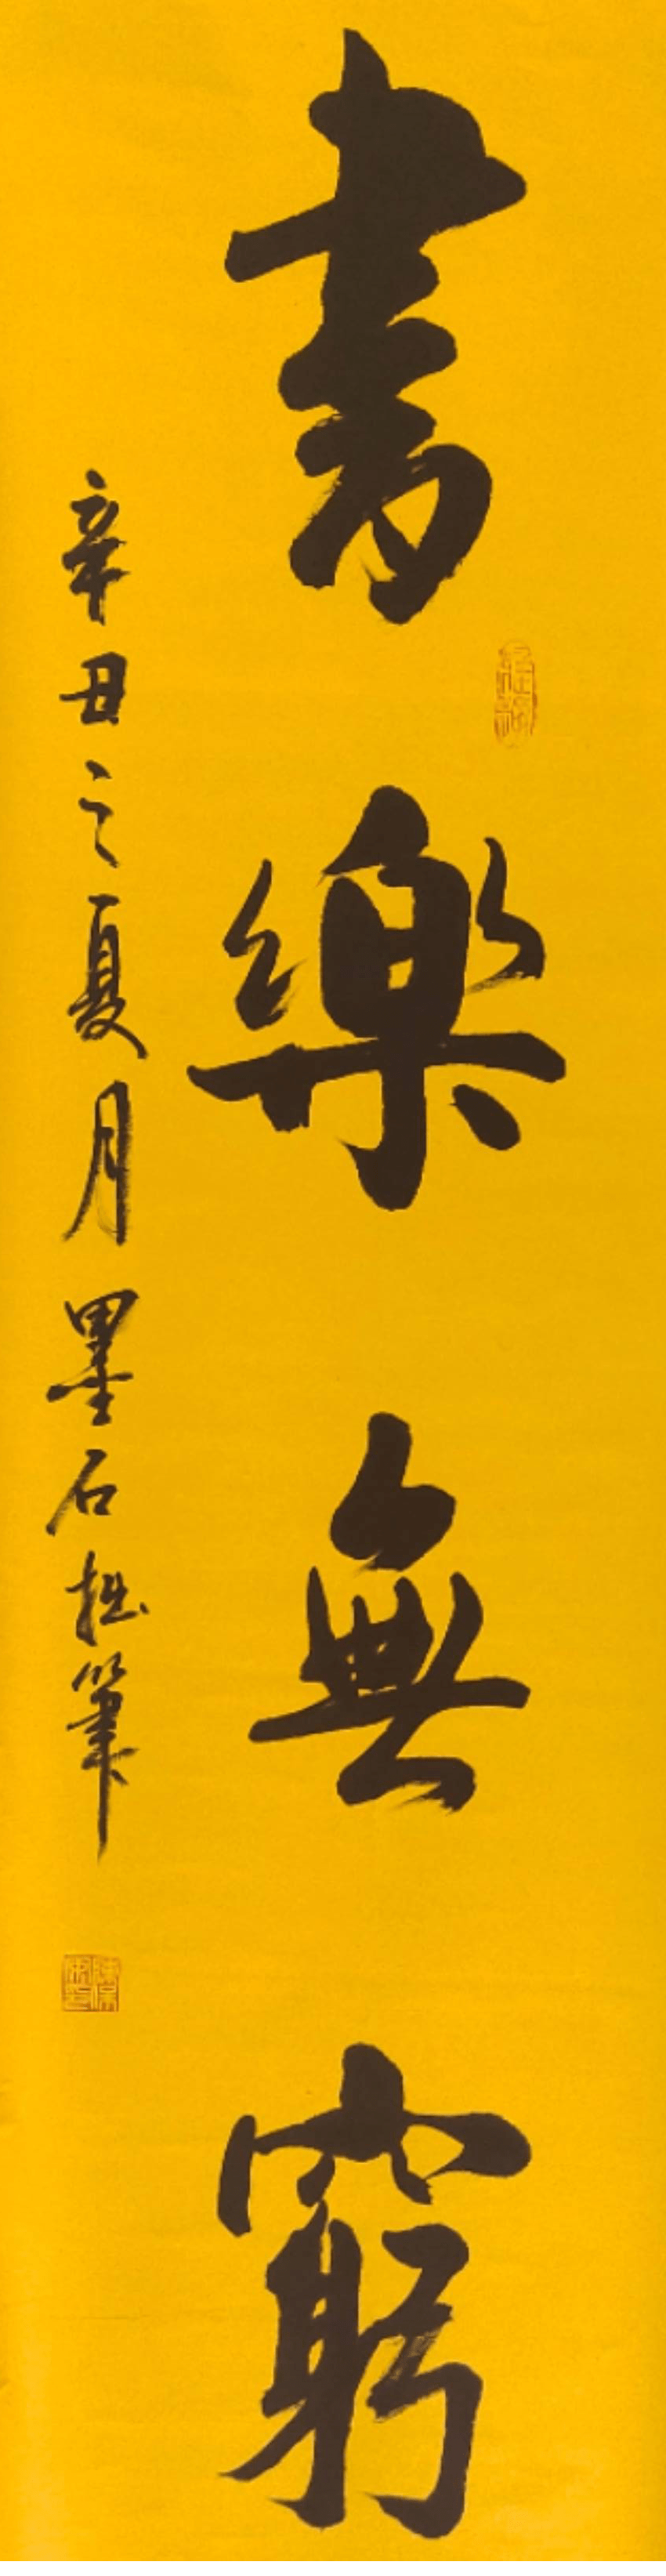 書樂無窮
辛丑之夏月墨石拙筆